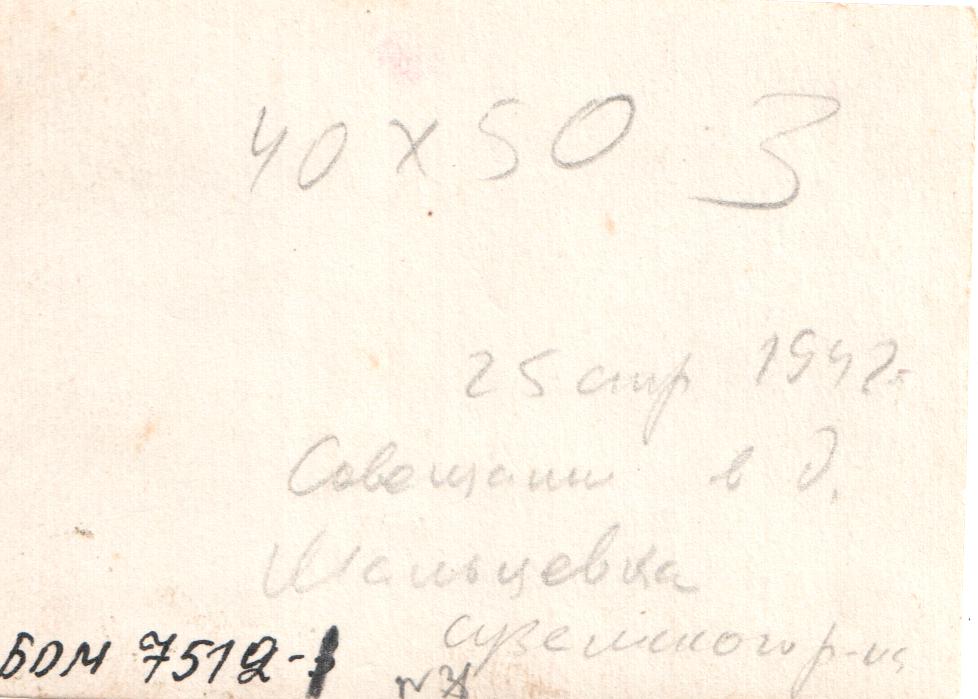 40 x 50 3
25 стр 1942 г.
Совещание в д.
Мальцевка
Суземского р-на
БОМ 7512-1